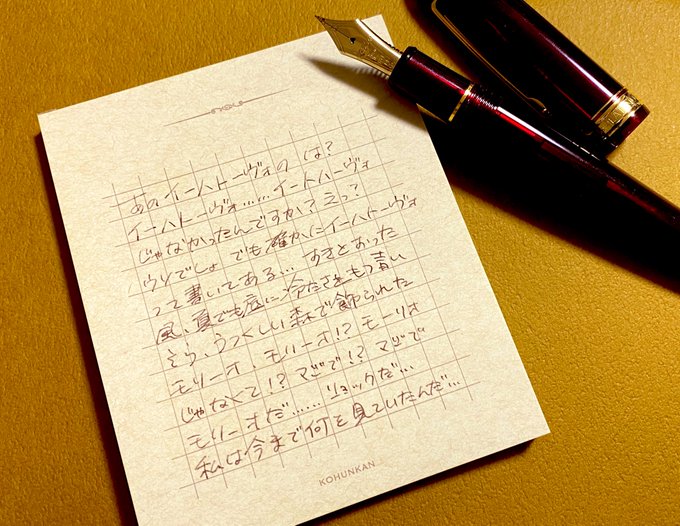 あのイーハトーヴォの は?
イーハトーヴォ……イートハーヴォ
じゃなかったんですか?えっ?
ウソでしょ でも確かにイーハトーヴォ
って書いてある… すきとおった
風、夏でも底に冷たさをもつ青い
そら、うつくしい森で飾られた
モリーオ、モリーオ!?モーリオ
じゃなくて!?マジで!?マジで
モリーオだ……ショックだ…
私は今まで何を見ていたんだ…
KOHUNKAN